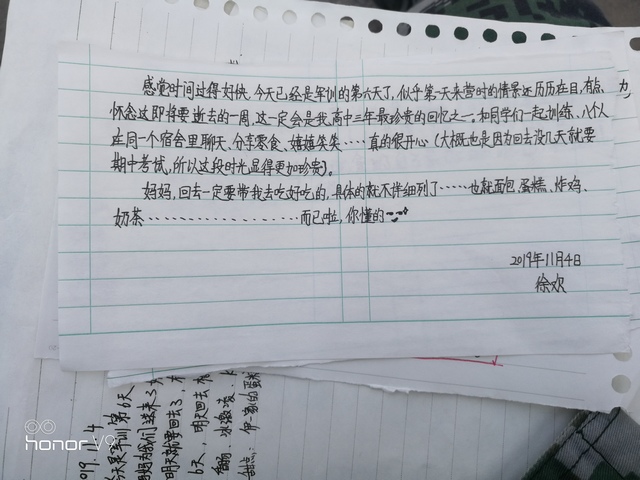 感觉时间过得好快，今天已经是军训的第六天了，似乎第一天来营时的情景还历历在目，有点
怀念这即将要逝去的一周，这一定会是我高中三年最珍贵的回忆之一，如同学们一起训练、八个人
在同一个宿舍里聊天、分享零食、嬉嬉笑笑……真的很开心（大概也是因为回去没几天就要
期中考试，所以这段时光显得更加珍贵）。
妈妈，回去一定要带我去吃好吃的，具体的就不详细列了……也就面包、蛋糕、炸鸡、
奶茶…………………而已啦，你懂的~~
2019年11月4日
徐欢
力
2019.11.4
今天是军训第6天
明天就要回去了，
6天，明天回去
honor V9